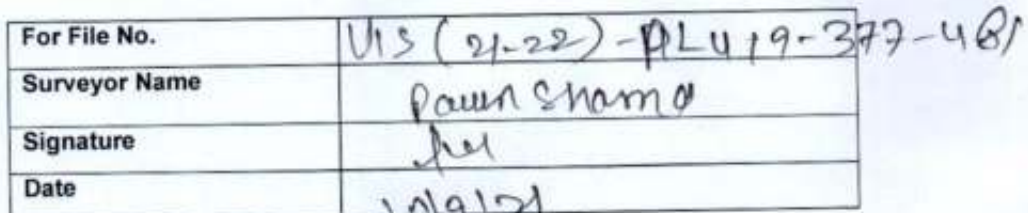 For File No. VIS (21-22)-PL419-377-481
Surveyor Name Pawan Sharma
Signature
Date 10/9/21